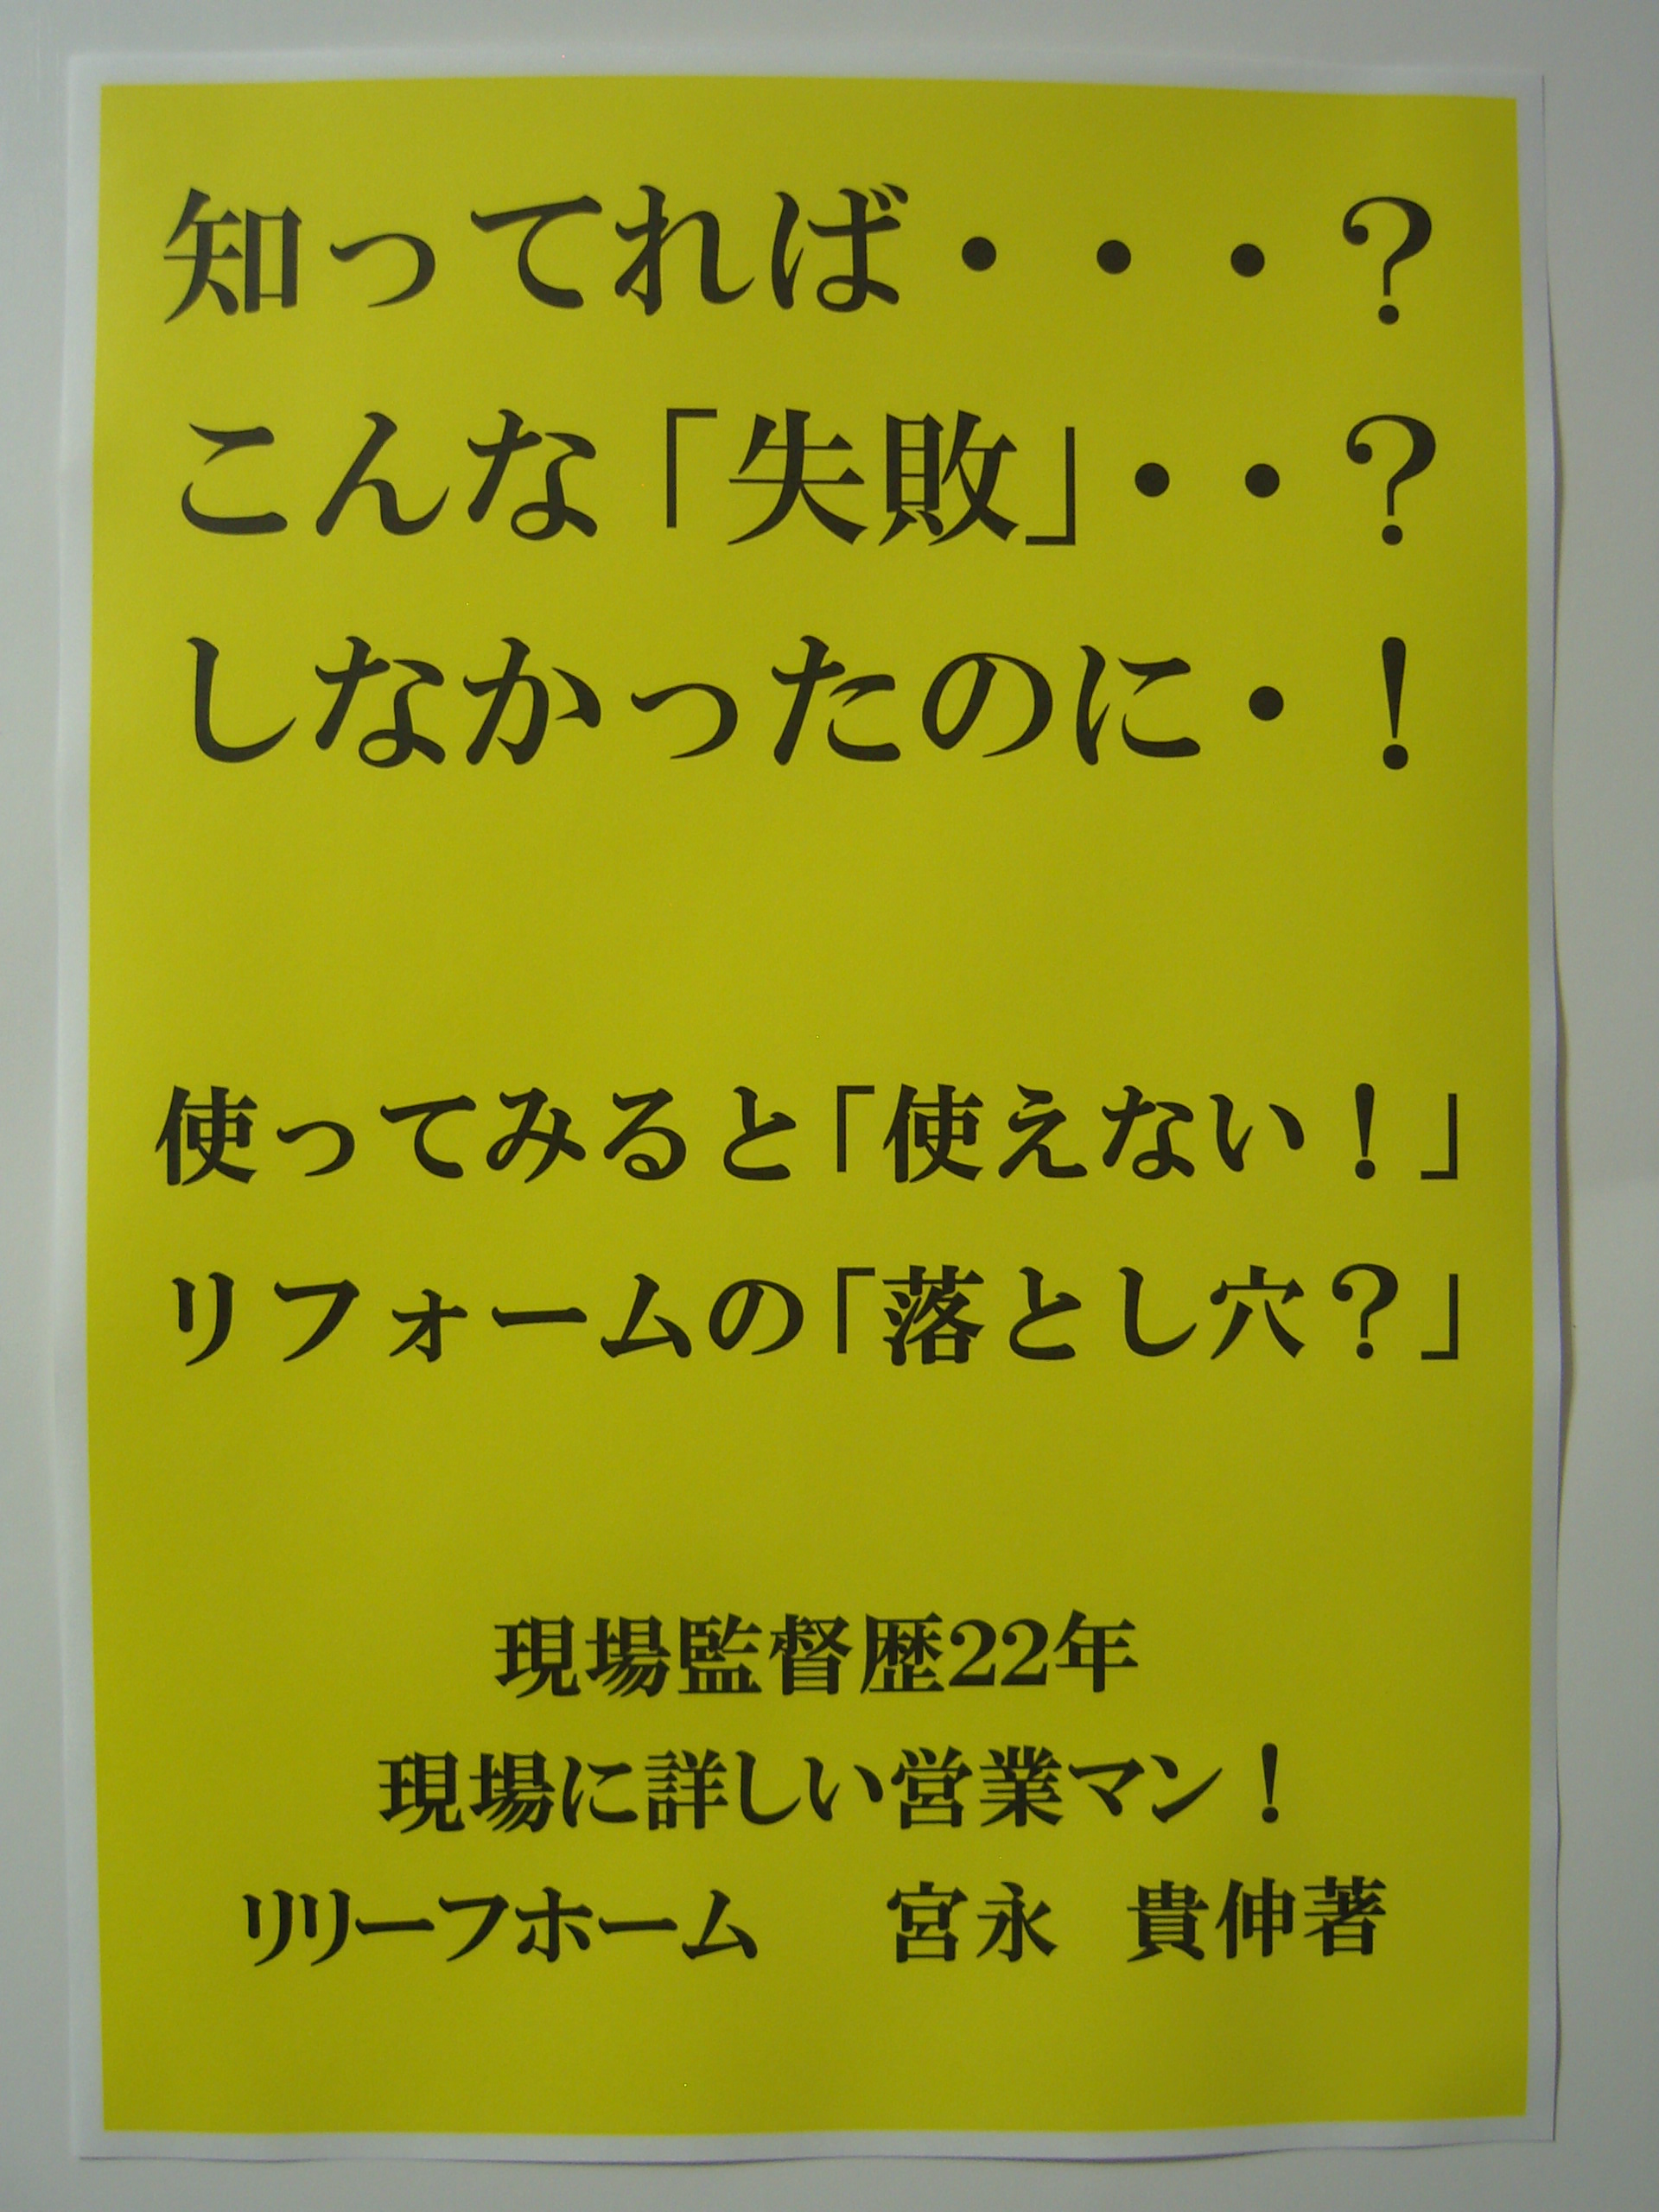 知ってれば・・・？
こんな「失敗」・・？
しなかったのに・！
使ってみると「使えない！」
リフォームの「落とし穴？」
現場監督歴22年
現場に詳しい営業マン！
リリーフホーム　宮永　貴伸著